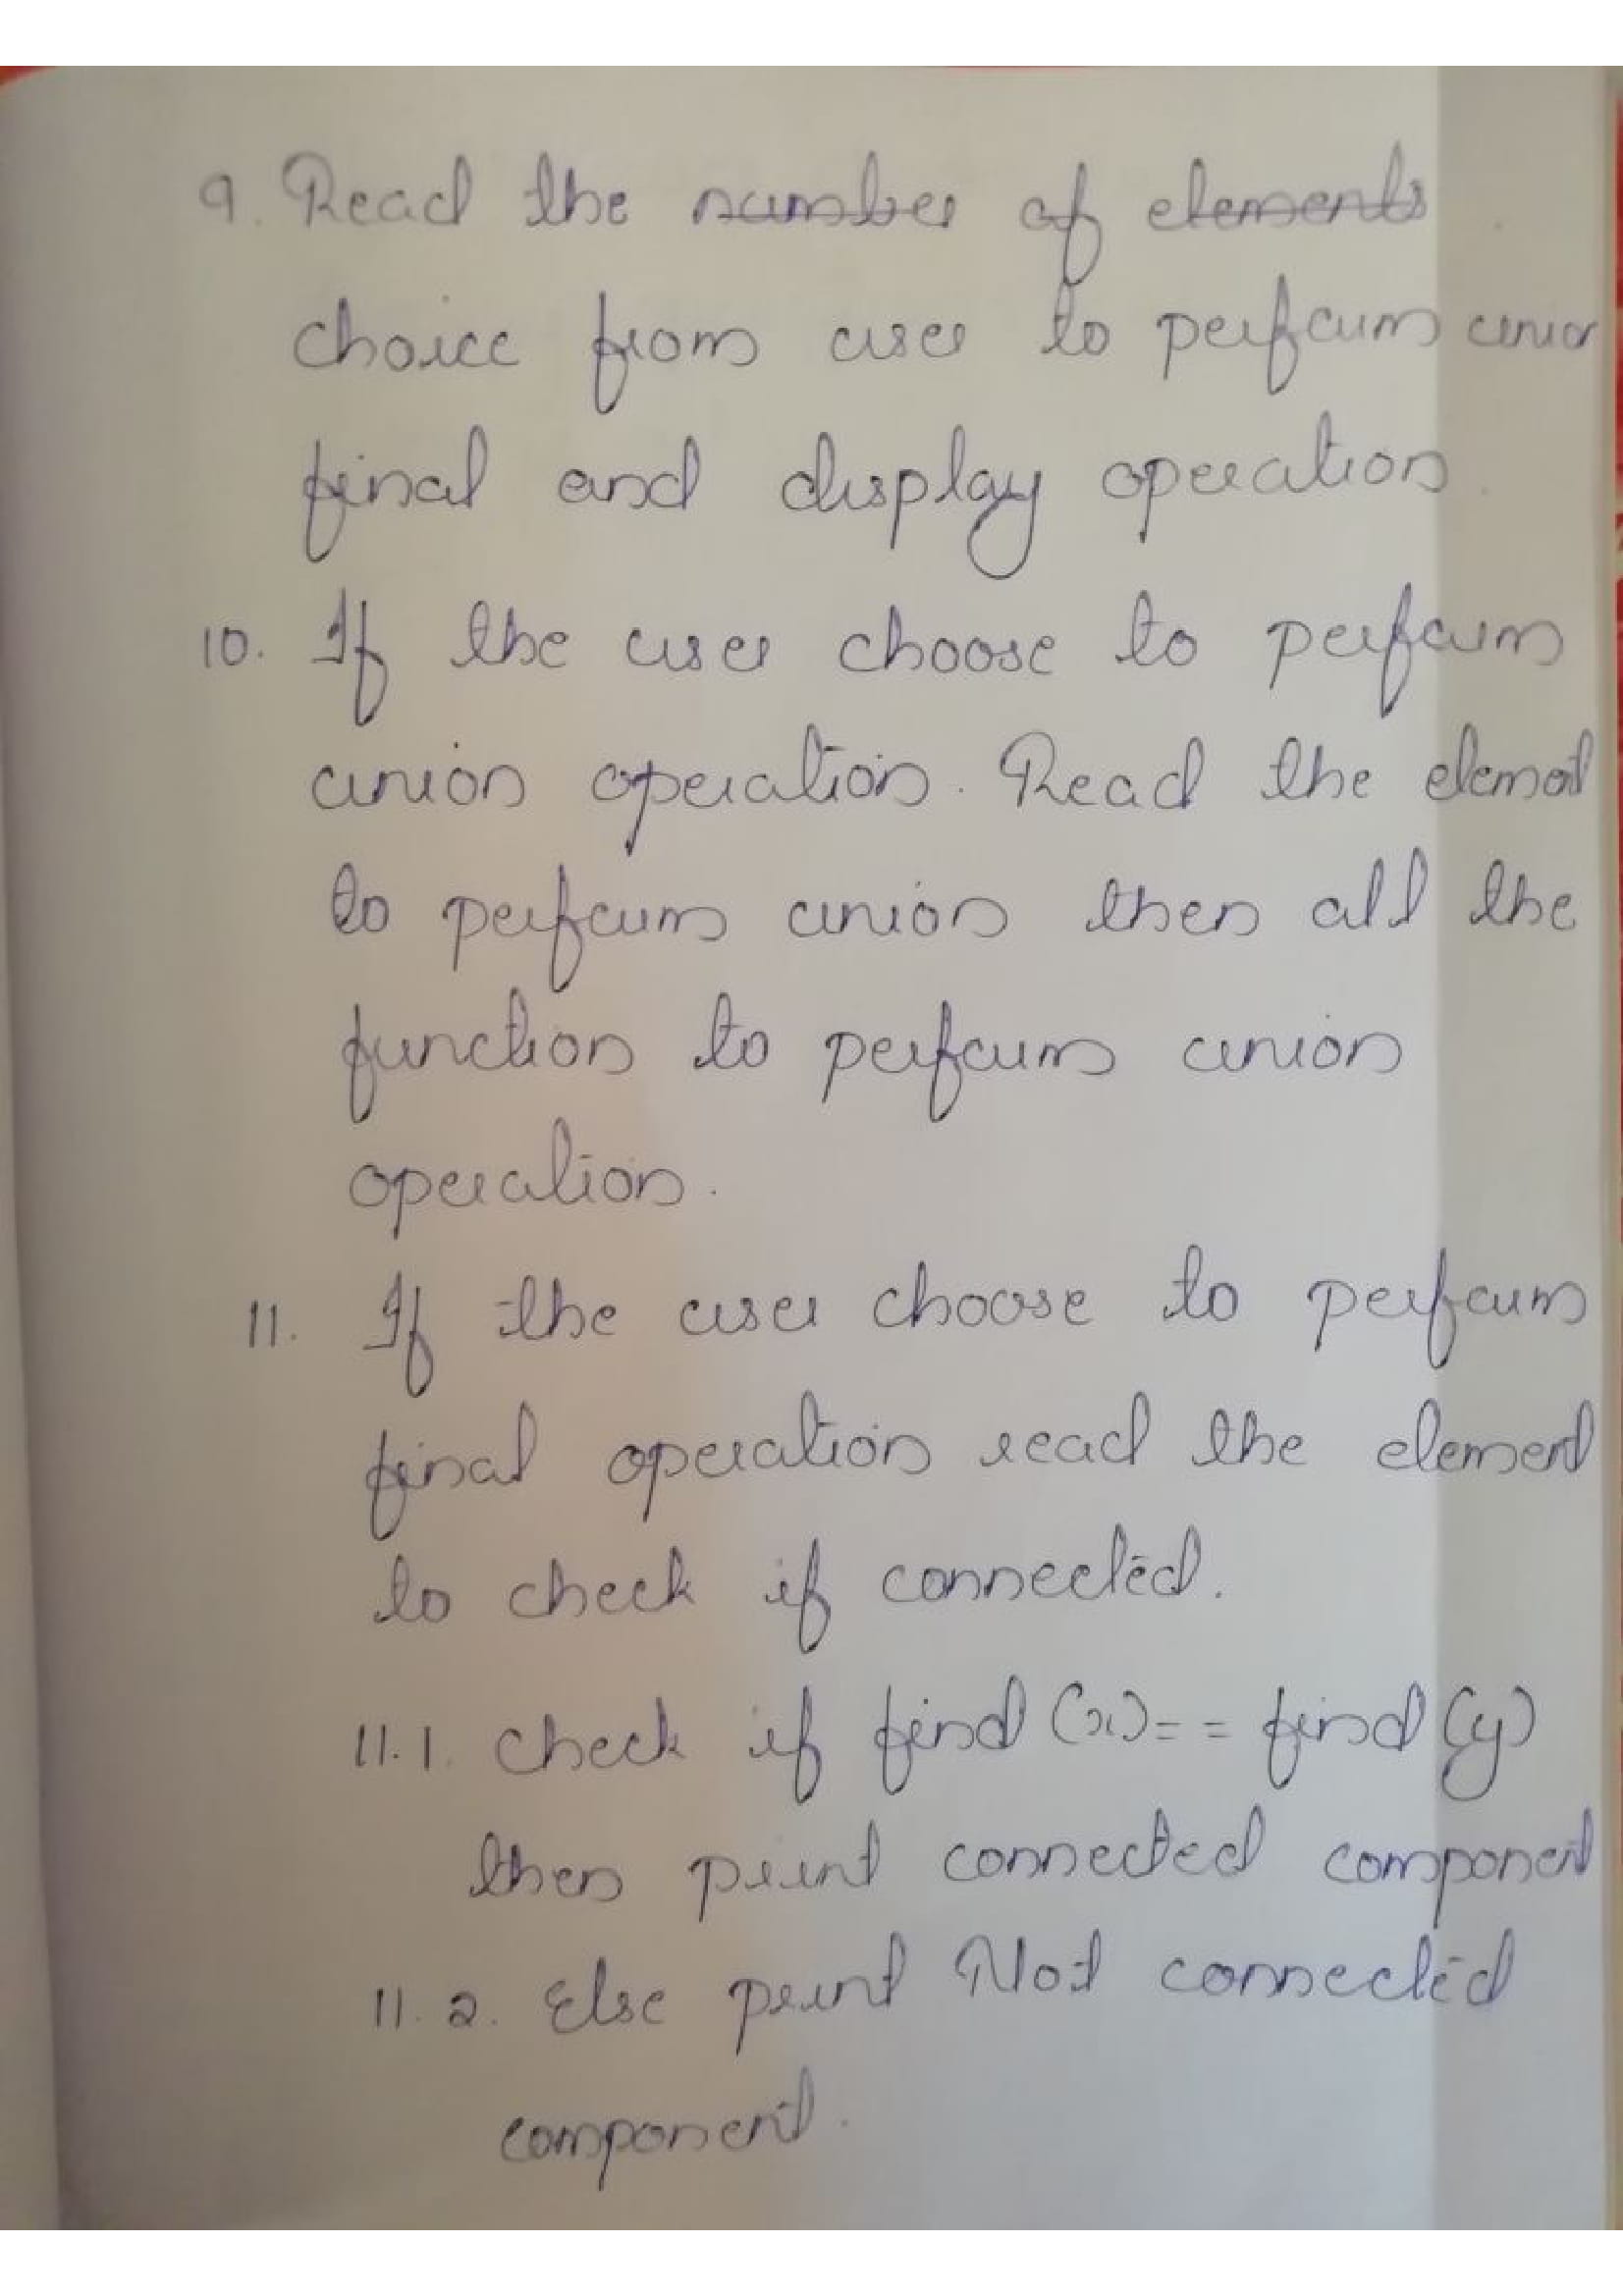 9. Read the number of elements
choice from user to perform union
final and display operation.
10. If the user choose to perform
union operation. Read the element
to perform union then all the
function to perform union
operation.
11. If the user choose to perform
final operation read the element
to check if connected.
11.1. Check if find (x) == find (y)
then print connected component
11.2. Else print Not connected
component.